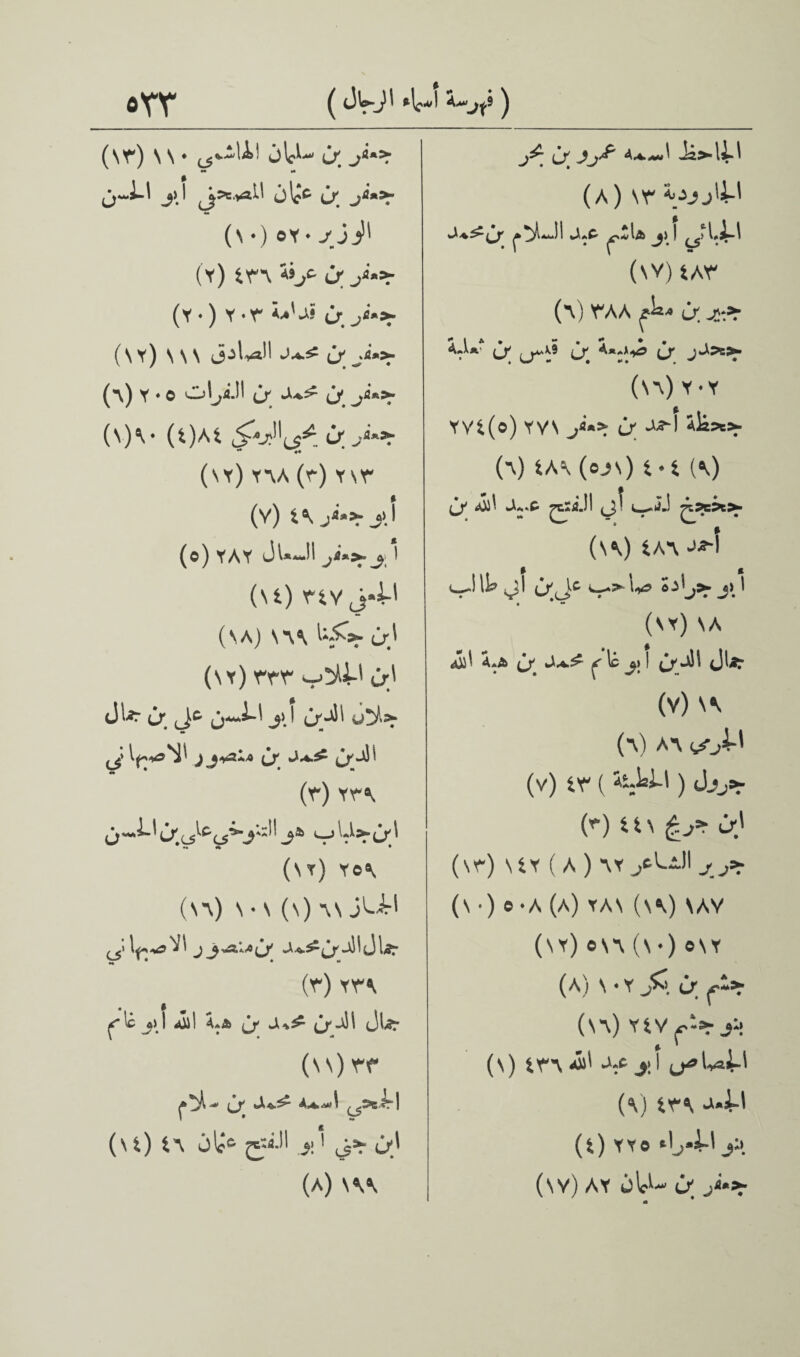 ( فهرسة أسماء الرجال ) ٥٢٣
الجاحظ اسمه عمرو بن بحر
الجارودية ١٣ (٨)
الجبائي أبو هاشم عبد السلام بن محمد
٤٨٣ (١٧)
جبير بن مطعم ٣٨٨ (٦)
جحدر بن ضبيعة بن قيس بن ثعلبة
٢٠٢ (١٦)
جحظة أحمد بن جعفر ٢٧١ (٥)٢٧٤
(٩) ٤٠٤ (١و٥) ٤٨٩ (٦)
جحجح لقب أبي الفتح عبيد الله بن
أحمد ٤٨٦ (١٩)
أبو جرادة صاحب علي بن أبي طالب
١٨ (١٢)
جمال الدين أبو غانم محمد بن هبة الله
١٩ (٧)
الجرمي ٨٦ (٦)
جرول ( الحطيئة ) ٤٣ (٧)
ابن جريج ٤٤١ (٣)
جرير الشاعر ٦٢ ( ٨ ) ١٤٢ (١٣)
١٨٧ (١٩) ٢٨١ (٨) ٥٠٨ (١٠)
٥١٢ (١٠) ٥١٦ (١٢)
جشم بن بكر ١٠٢ (٨)
بنو جشم ٢٤٧ (١٦)
الجصاص أبو عبد الله ٤٣٦ (١)
الجعد ٤٣٩ (٩)
بنو الجعراء ٢٢٥ (٤)
جعفر بن سليمان ٨٢ (١٧)
جعفر بن سليمان ١١٠ (١٣)
جعفر بن عثمان المصحفي أبو الحسن
الوزير ٥٢٠ (١٠)
جعفر بن عرفة ٤٣٦ (٢)
جعفر بن قدامة ٢٠٣ (٢٠)
جعفر بن محمد الصادق ١١١ (١٢)
جعفر بن محمد بن الفرات ٢٠٥ (٦)
جعفر بن يحيى البرمكي ٨٤(٤) ٩٠(١)
٢١٣ (٣) ٢٦٨ (١٢)
أبو جعفر ٤٩ (٧)
أبو جعفر السعال ٢٨٢ (٥)
الجعفي ٣٤٧ (١٤)
ابن جكينا ١٦٩ (١٨)
ابن الجلاب ٣٣٣ (١٢)
جلال الدين أبو الحسن علي بن جمال
الدين محمد بن منصور الاصبهاني
٢٣٩ (٣)
ابن جلباب هو النحوي علي بن الحسن
٢٥٩ (١٢)
الجماز ٦١ (١) ١٠٦ (١٦)
جمال الدين محمد بن منصور الاصبهاني
٢٣٩ (٣)
جمال الدين محمد بن هبة الله أبو غانم
٣٣ (١١)
الجمحي اسمه محمد بن سلام
ابن جني أبو الفتح عثمان ٤٦ (١٤)
١٩٩ (٨)